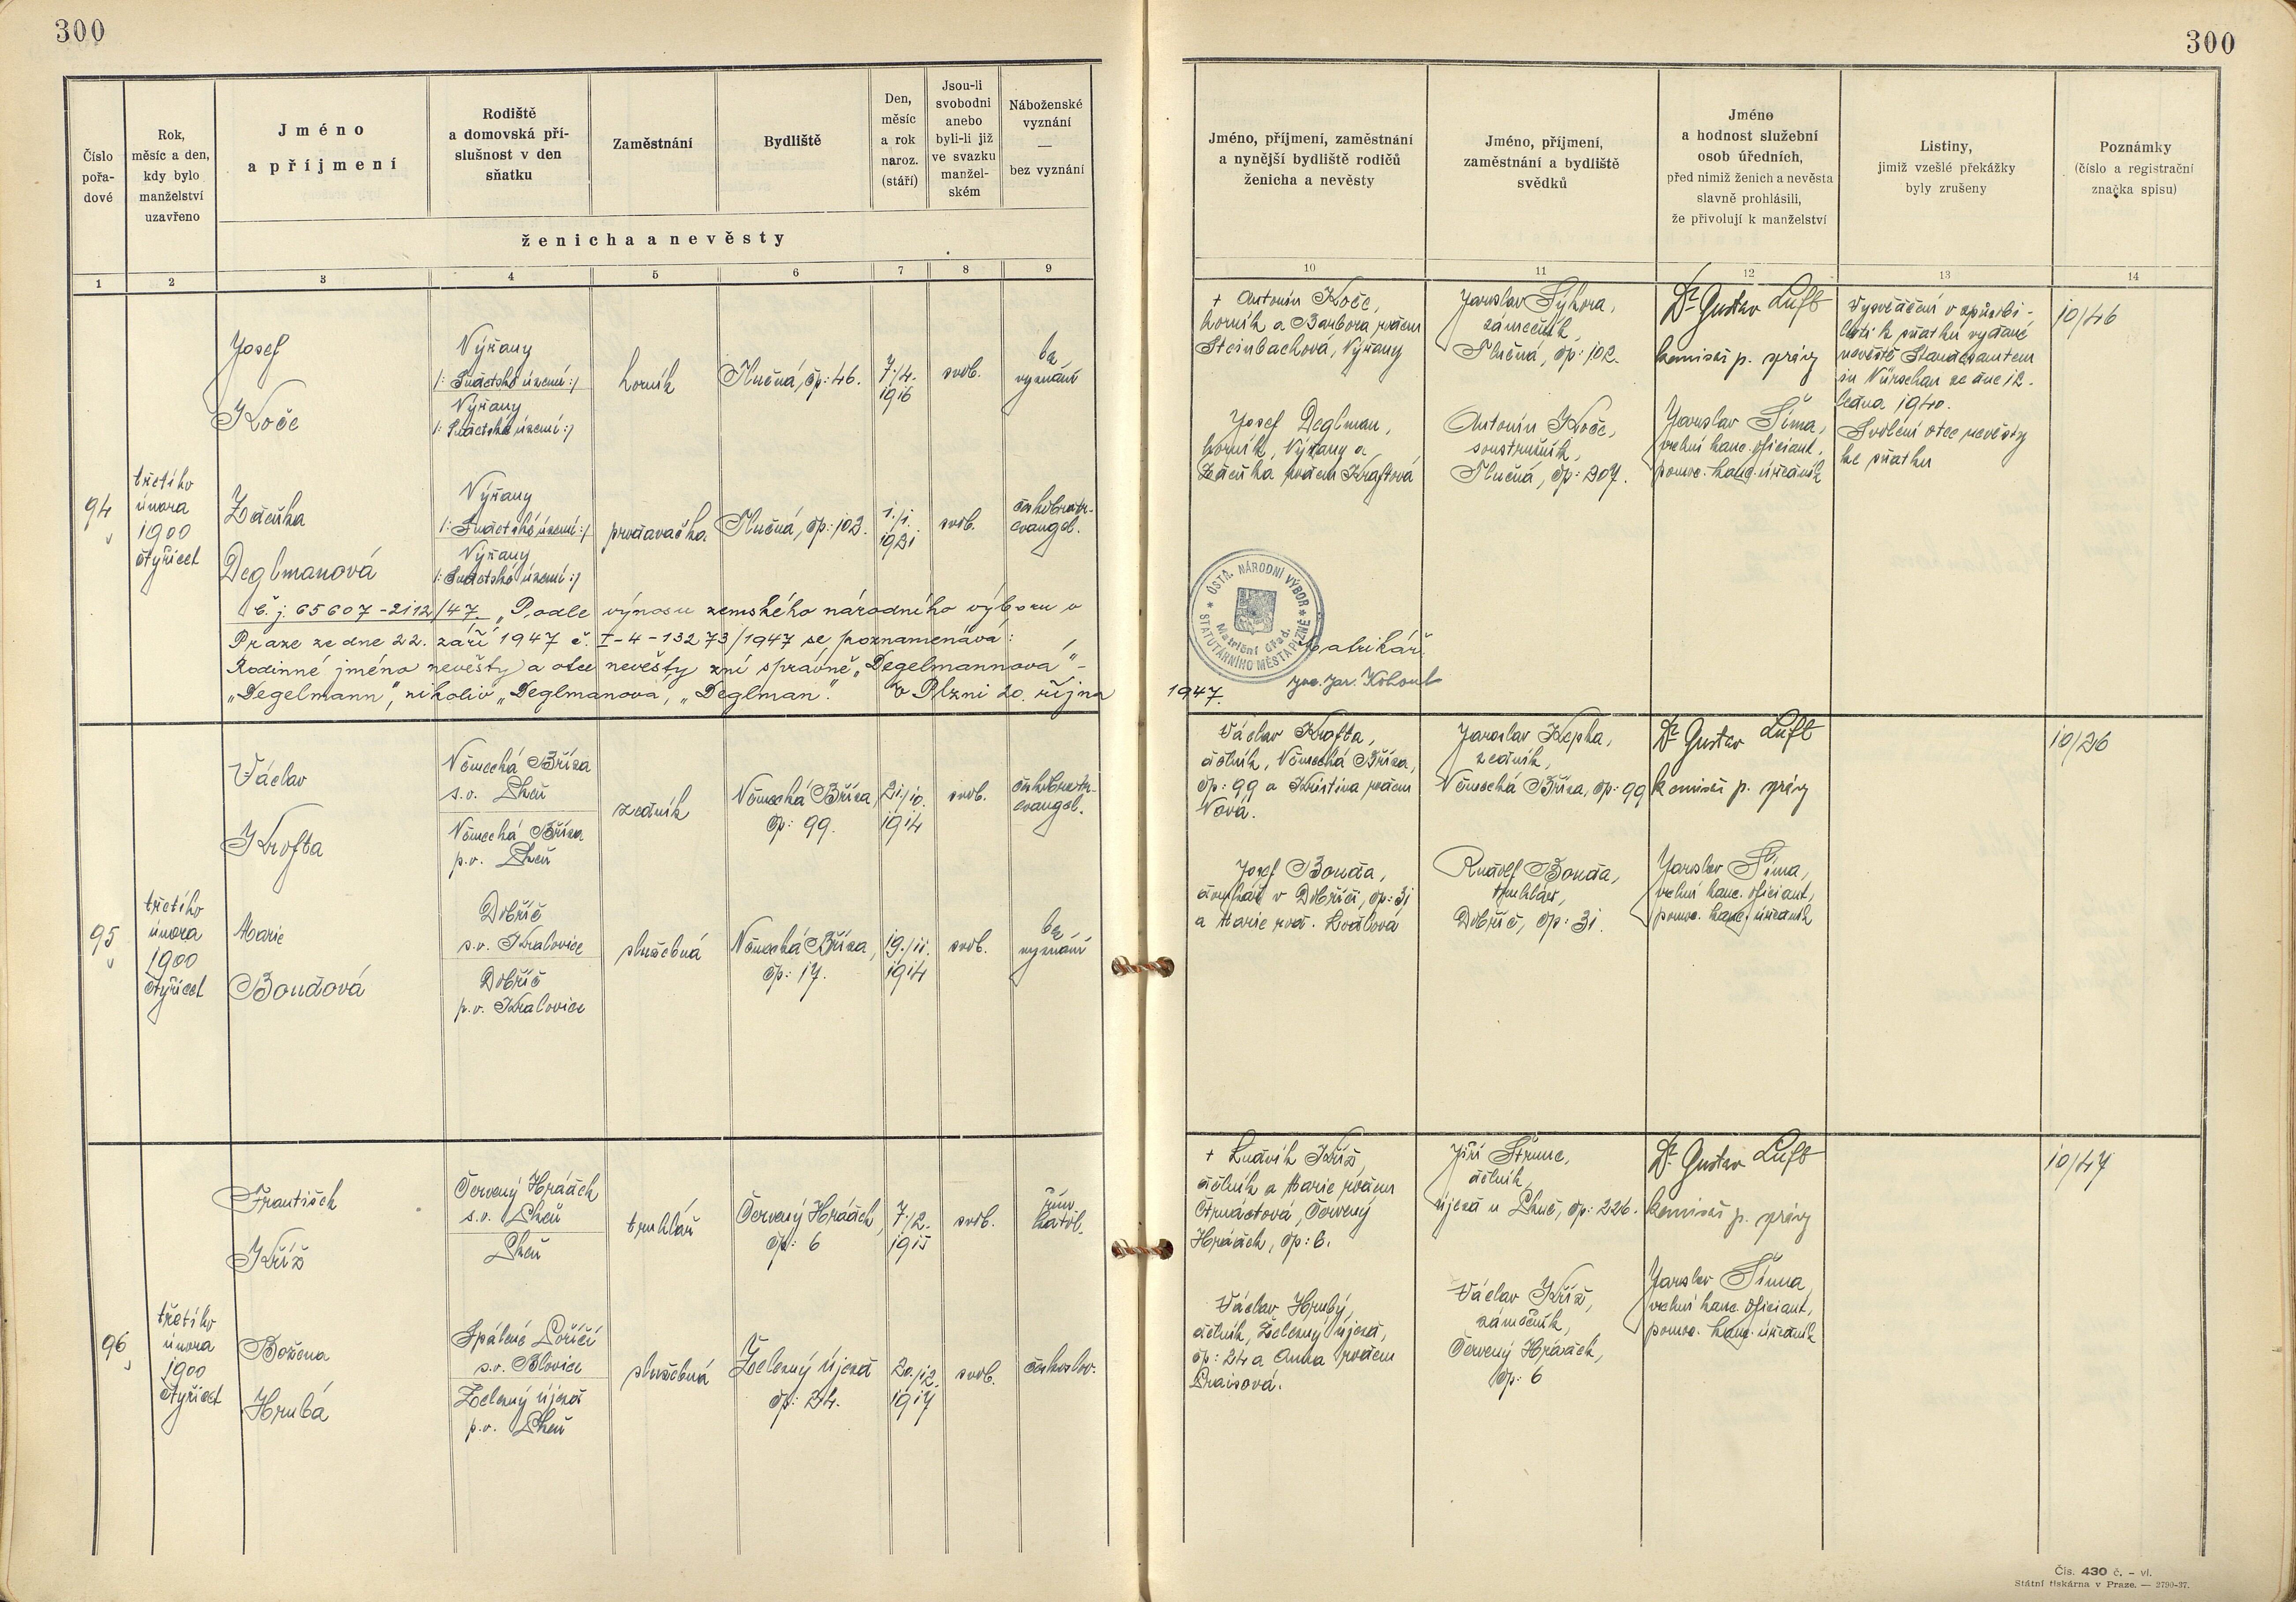 300
300
Číslo
pořa-
dové
Rok,
měsíc a den,
kdy bylo
manželství
uzavřeno
Jméno
a příjmení
Rodiště
a domovská pří-
slušnost v den
sňatku
Zaměstnání
Bydliště
Den,
měsíc
a rok
naroz.
(stáří)
Jsou-li
svobodni
anebo
byli-li již
ve svazku
manžel-
ském
Náboženské
vyznání
—
bez vyznání
ženicha a nevěsty
1 2 3 4 5 6 7 8 9
Jméno, příjmení, zaměstnání
a nynější bydliště rodičů
ženicha a nevěsty
Jméno, příjmení,
zaměstnání a bydliště
svědků
Jméno
a hodnost služební
osob úředních,
před nimiž ženich a nevěsta
slavně prohlásili,
že přivolují k manželství
Listiny,
jimiž vzešlé překážky
byly zrušeny
Poznámky
(číslo a registrační
značka spisu)
10 11 12 13 14
94
třetího
února
1900
čtyřicet
Josef
Koče
Výřany
/: Sudetské území :/
Výřany
/: Sudetské území :/
horník
Tlučná, čp: 46.
7./4.
1916
svob.
bez
vyznání
Zdeňka
Deglmanová
Výřany
/: Sudetské území :/
Výřany
/: Sudetské území :/
prodavačka
Tlučná, čp: 102.
1./1.
1921
svob.
českobratr.
evangel.
Č. j. 65607-2112/47. „Podle výnosu zemského národního výboru v
Praze ze dne 22. září 1947 č. I-4-13273/1947 se poznamenává:
Rodinné jméno nevěsty a otce nevěsty zní správně „Degelmannová"-
„Degelmann", nikoliv „Deglmanová", „Deglman". V Plzni 20. října
1947.
† Antonín Koče,
horník a Barbora rodem
Steinbachová, Výřany
Josef Deglman,
horník, Výřany a
Zdeňka rodem Kraftová
Jaroslav Sýkora,
zámečník,
Tlučná, čp: 102.
Antonín Koče,
soustružník,
Tlučná, čp: 207.
Dr Gustav Luft
komisař p. správy
Jaroslav Šíma,
vrchní kanc. oficiant,
pomoc. kanc. úředník
Vysvědčení o způsobi-
losti k sňatku vydané
nevěstě Standesamtem
in Nürschan ze dne 12.
ledna 1940.
Svolení otce nevěsty
ke sňatku
10/46
ÚSTŘ. NÁRODNÍ VÝBOR
STATUTÁRNÍHO MĚSTA PLZNĚ
Matriční úřad.
Matrikář:
Jar. Kohout
95
třetího
února
1900
čtyřicet
Václav
Krofta
Německá Bříza
s.o. Plzeň
Německá Bříza
p.o. Plzeň
zedník
Německá Bříza,
čp: 99.
21./10.
1914
svob.
českobratr.
evangel.
Marie
Boudová
Dobříč
s.o. Kralovice
Dobříč
p.o. Kralovice
služebná
Německá Bříza,
čp: 17.
19./11.
1914
svob.
bez
vyznání
Václav Krofta,
dělník, Německá Bříza,
čp: 99 a Kristina rodem
Nová.
Josef Bouda,
domkář v Dobříči, čp: 31
a Marie rod.
Jaroslav Kepka,
zedník,
Německá Bříza, čp: 99
Rudolf Bouda,
truhlář,
Dobříč, čp: 31.
Dr Gustav Luft
komisař p. správy
Jaroslav Šíma,
vrchní kanc. oficiant,
pomoc. kanc. úředník
10/26
96
třetího
února
1900
čtyřicet
František
Kříž
Červený Hrádek
s.o. Plzeň
Plzeň
truhlář
Červený Hrádek,
čp: 6
7./2.
1915
svob.
řím.
katol.
Božena
Hrubá
Spálené Poříčí
s.o. Blovice
Zelený Újezd
p.o. Plzeň
služebná
Zelený Újezd
čp: 24.
20./12.
1917
svob.
českoslov.
† Ludvík Kříž,
dělník a Marie rodem
Čtrnáctová, Červený
Hrádek, čp: 6.
Václav Hrubý,
dělník, Zelený Újezd,
čp: 24 a Anna rodem
Praisová.
Jiří Štrunc,
dělník,
Újezd u Plzně, čp: 226.
Václav Kříž,
zámečník,
Červený Hrádek,
čp: 6
Dr Gustav Luft
komisař p. správy
Jaroslav Šíma,
vrchní kanc. oficiant,
pomoc. kanc. úředník
10/47
Čís. 430 č. – vl.
Státní tiskárna v Praze. — 2790-37.